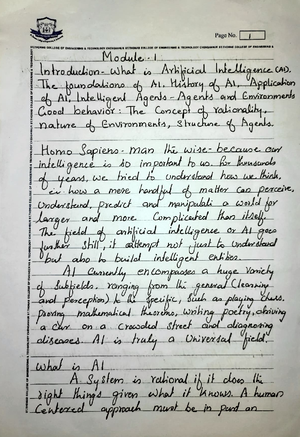 Page No. 1
Module - 1
Introduction - What is Artificial Intelligence (AI),
The foundations of AI, History of AI, Application
of AI, Intelligent Agents - Agents and Environments
Good behavior: The Concept of rationality
nature of Environments, Structure of Agents.
Homo Sapiens - man the wise - because our
intelligence is so important to us. for thousands
of years, we tried to understand how we think,
ie how a mere handful of matter can perceive,
understand, predict and manipulate a world far
larger and more complicated than itself.
The field of artificial intelligence or AI goes
further still: it attempt not just to understand
but also to build intelligent entities.
AI currently encompasses a huge variety
of subfields, ranging from the general (learning
and perception) to the specific, such as playing chess,
proving mathematical theorems, writing poetry, driving
a car on a crowded street and diagnosing
diseases. AI is truly a Universal field.
what is AI
A System is rational if it does the
right things given what it knows. A human
Centered approach must be in part an